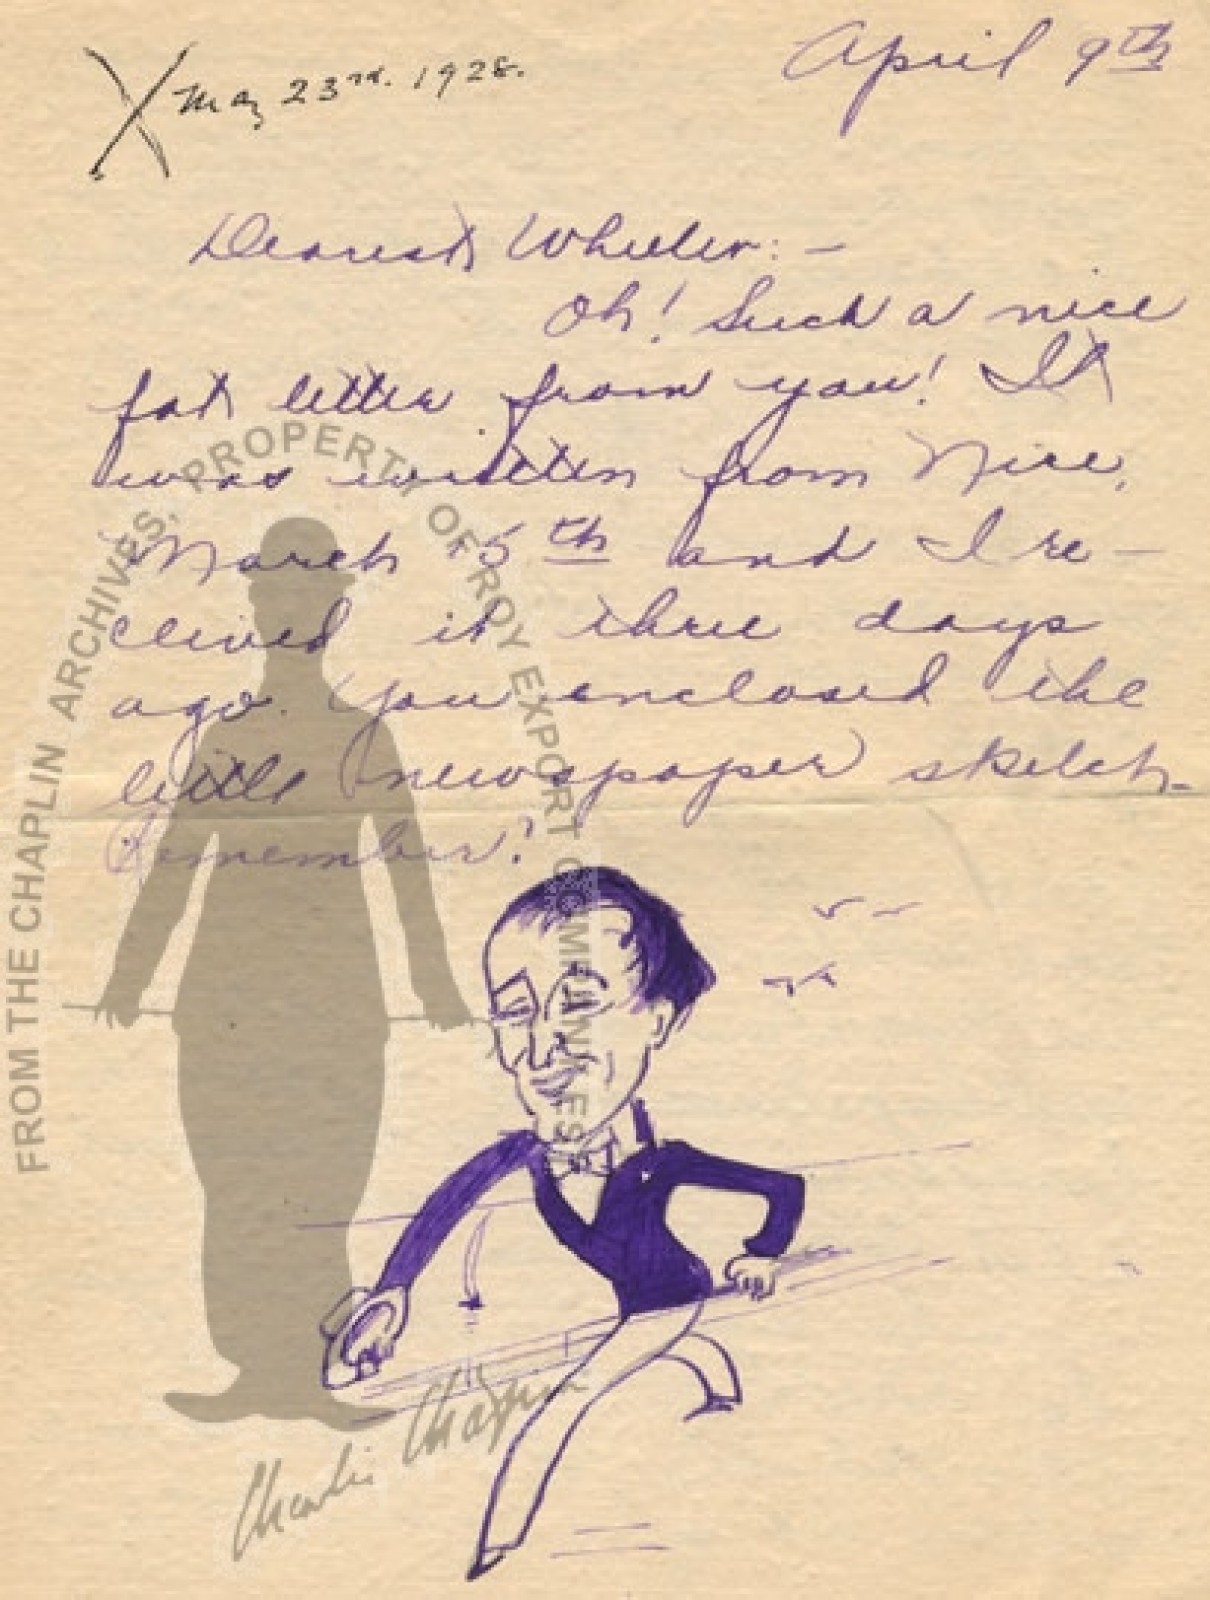 April 9th
X May 23rd. 1928.
Dearest Wheeler: —
Oh! Such a nice
fat letter from you! It
was written from Nice,
March 15th and I re-
ceived it three days
ago. You enclosed the
little newspaper sketch.
Remember?
FROM THE CHAPLIN ARCHIVES, PROPERTY OF ROY EXPORT COMPANY EST
Charlie Chaplin